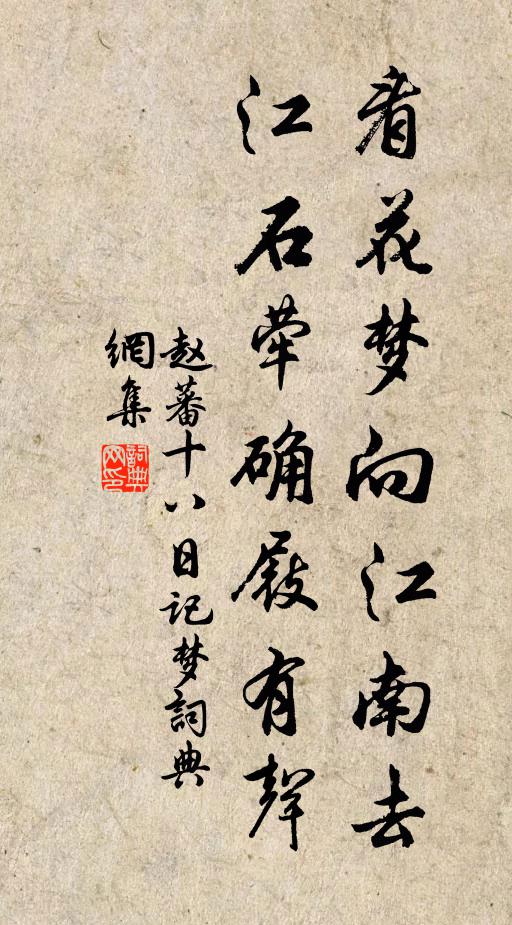 看花梦向江南去
江石荦确屐有聲
赵蕃十八日记梦詞典
網集
詞典
网印